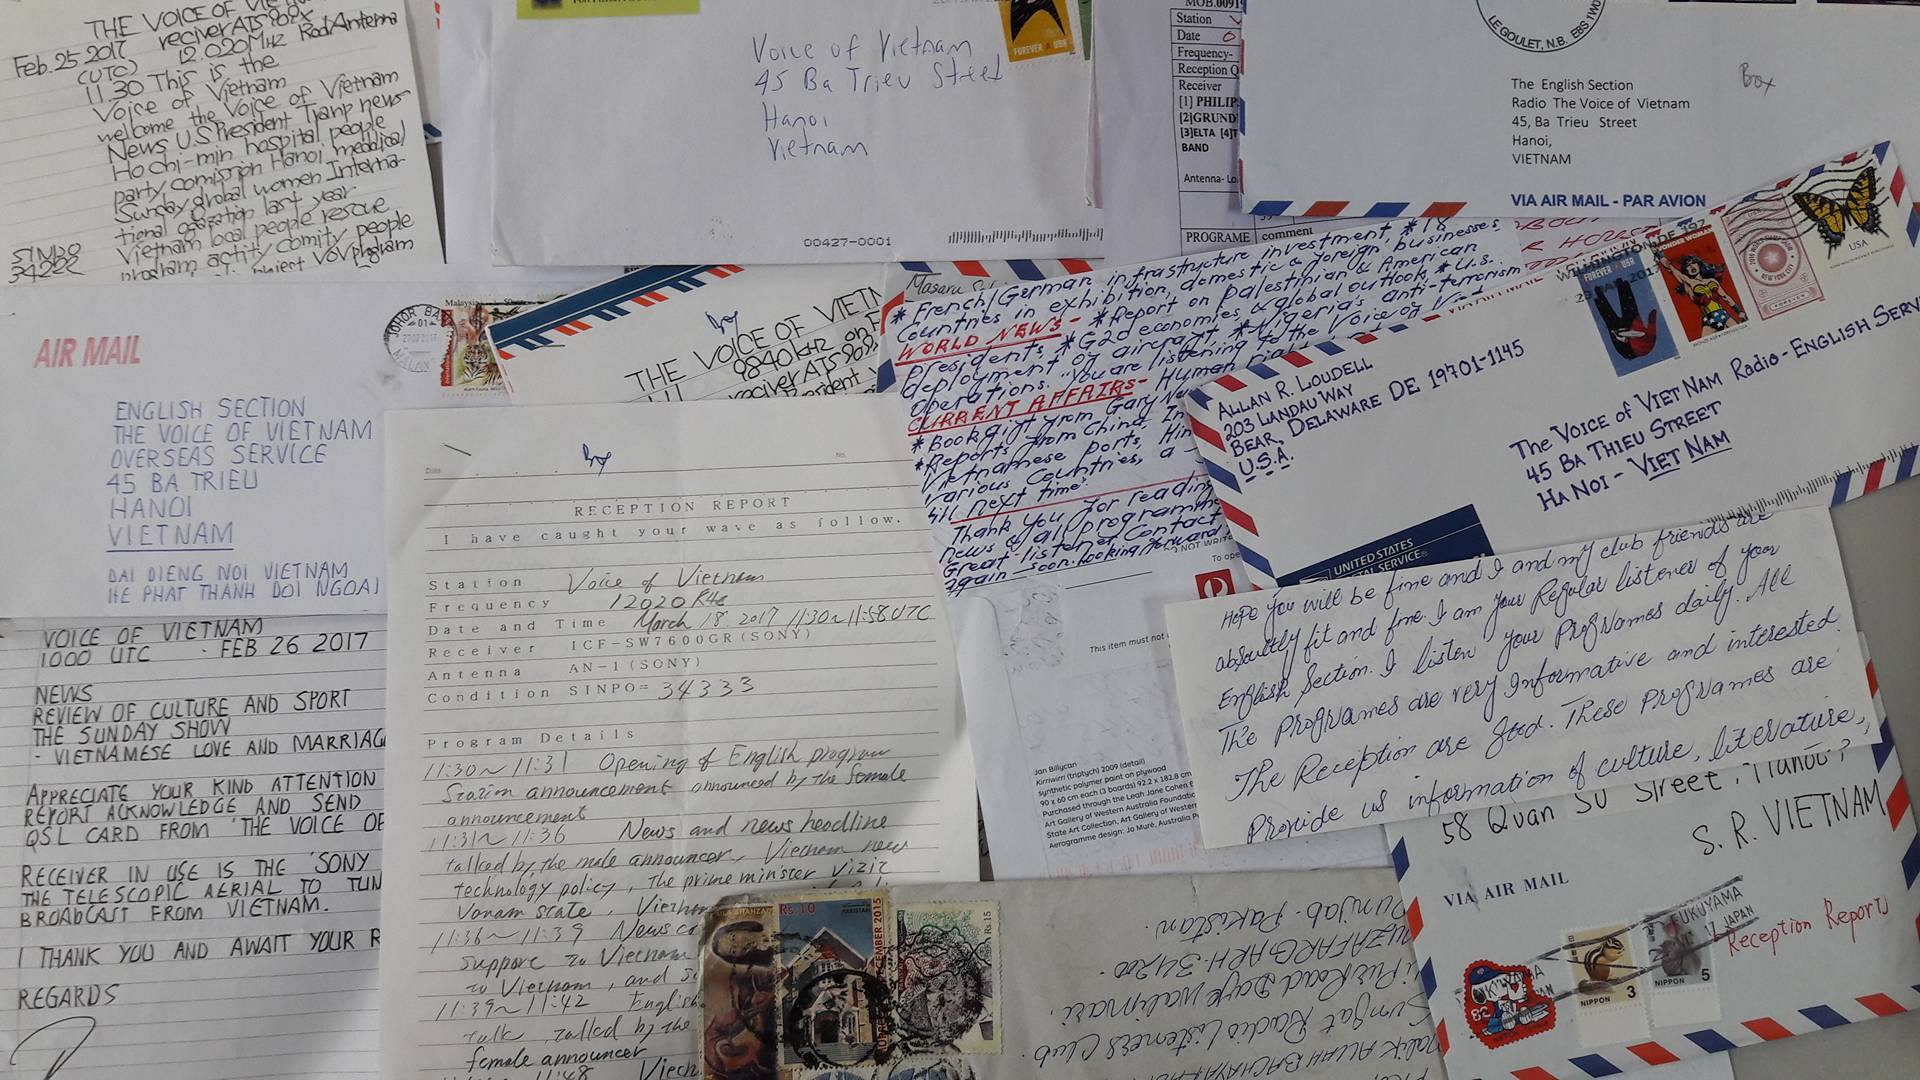 THE VOICE OF
Feb. 25 2017 reciver ATS 909X
(UTC) 12.020MHz Rod Antenna
11.30 This is the
Voice of Vietnam
welcome the Voice of Vietnam
News U.S President Tramp news
Ho chi-min hospital people
party comission Hanoi meadical
Sunday grobal women Interna-
tional ogazation last year
Vietnam local people rescue
program actity comity people
project VOV program
SINPO
34222
Voice of Vietnam
45 Ba Trieu Street
Hanoi
Vietnam
00427-0001
FOREVER USA
MOB.0091
Station
Date
Frequency-
Reception Q
Receiver
[1] PHILIP
[2]GRUND
[3]ELTA [4]T
BAND
Antenna- Lo
PROGRAME comment
LE GOULET, N.B. E8S 1W0
The English Section
Radio The Voice of Vietnam
45, Ba Trieu Street
Hanoi,
VIETNAM
Box
VIA AIR MAIL - PAR AVION
AIR MAIL
JOHOR BA
Malaysia
ENGLISH SECTION
THE VOICE OF VIETNAM
OVERSEAS SERVICE
45 BA TRIEU
HANOI
VIETNAM
DAI DIENG NOI VIETNAM
HE PHAT THANH DOI NGOAI
Box
THE VOICE OF VIETN
9840kHz on F
reciver ATS 909
resident
Masaru
* French/German infrastucture investment * 18
Countries in exhibition, domestic & foreign businesses
WORLD NEWS- * Report on Palestinian & American
presidents, * G20 economies & global outlook, * U.S.
deployment of aircraft, * Nigeria's anti-terrorism
operations. "You are listening to the Voice of
CURRENT AFFAIRS- Human
* Book gift from Gary
* Reports from China, In
Vietnamese ports, Hin
various countries, a
till next time."
Thank you for reading
news & all programming
Great listener Contact
again soon. Looking forward
ALLAN R. LOUDELL
203 LANDAU WAY
BEAR, DELAWARE DE 19701-1145
U.S.A.
FOREVER USA
WONDER WOMAN
FOREVER
USA
The Voice of VIET NAM Radio - ENGLISH SERV
45 BA THIEU STREET
HA NOI - VIET NAM
UNITED STATES
POSTAL SERVICE®
VOICE OF VIETNAM
1000 UTC - FEB 26 2017
NEWS
REVIEW OF CULTURE AND SPORT
THE SUNDAY SHOW
- VIETNAMESE LOVE AND MARRIAG
APPRECIATE YOUR KIND ATTENTION
REPORT ACKNOWLEDGE AND SEND
QSL CARD FROM 'THE VOICE OF
RECEIVER IN USE IS THE 'SONY
THE TELESCOPIC AERIAL TO TUN
BROADCAST FROM VIETNAM.
I THANK YOU AND AWAIT YOUR R
REGARDS
Date No.
Box
RECEPTION REPORT
I have caught your wave as follow.
Station Voice of Vietnam
Frequency 12020 KHz
Date and Time March 18 2017 11:30~11:58 UTC
Receiver ICF-SW7600GR(SONY)
Antenna AN-1(SONY)
Condition SINPO= 34333
Program Details
11:30~11:31 Opening of English program
Station announcement announced by the female
announcement
11:31~11:36 News and news headline
talked by the male announcer, Vietnam new
technology policy, the prime minister vizit
Vonam state, Vietnam
11:36~11:39 News co
support to Vietnam
to Vietnam, and s
11:39~11:42 English
talk talked by the
female announcer
11:48 Vietn
To ope
This item must not
Jan Billycan
Kirriwirri (triptych) 2009 (detail)
synthetic polymer paint on plywood
90 x 60 cm each (3 boards) 92.2 x 182.8 cm
Purchased through the Leah Jane Cohen B
Art Gallery of Western Australia Foundatio
State Art Collection, Art Gallery of Wester
Aerogramme design: Jo Muré, Australia P
Hope you will be fine and I and my club friends are
absoultly fit and fine. I am your Regular listener of your
English Section. I listen your Programes daily. All
The Programes are very Informative and interested.
The Reception are good. These Programes are
Provide us information of culture, literature,
58 Quan Su Street, Hanoi,
S. R. VIETNAM
VIA AIR MAIL
FUKUYAMA
JAPAN
Reception Report
82
NIPPON 3
NIPPON 5
Rs.10
PAKISTAN
Rs.15
Punjab-Pakistan.
MUZAFARGARH-34200.
Sungat Radio Listeners Club.
MALIK ALLAH BACHAYA